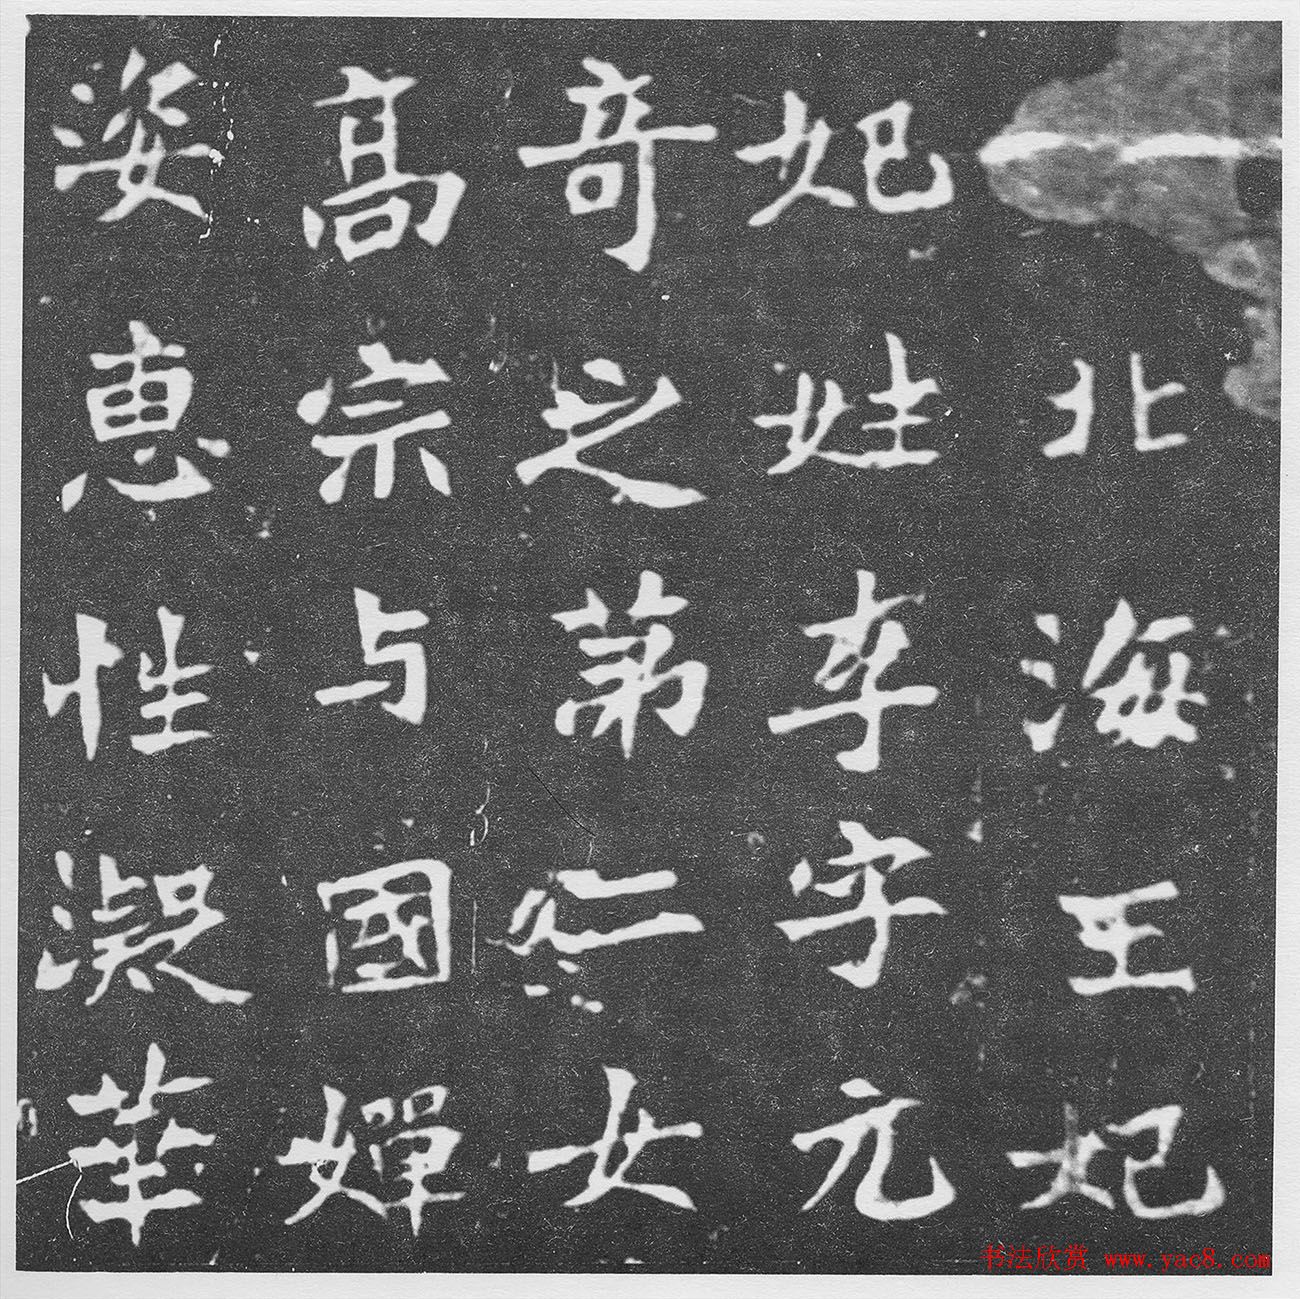 北海王妃
妃姓李字元
奇之第仁女
高宗与國嬋
姿惠性凝華
书法欣赏 www.yac8.com